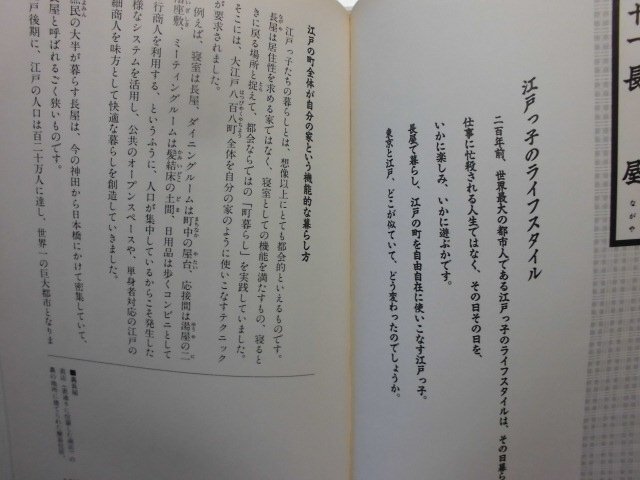 十一長屋
ながや
江戸っ子のライフスタイル
二百年前、世界最大の都市人である江戸っ子のライフスタイルは、その日暮ら
仕事に忙殺される人生ではなく、その日その日を、
いかに楽しみ、いかに遊ぶかです。
長屋で暮らし、江戸の町を自由自在に使いこなす江戸っ子。
東京と江戸、どこが似ていて、どう変わったのでしょうか。
江戸の町全体が自分の家という機能的な暮らし方
江戸っ子たちの暮らしとは、想像以上にとても都会的といえるものです。
長屋は居住性を求める家ではなく、寝室としての機能を満たすもの、寝ると
きに戻る場所と捉えて、都会ならではの「町暮らし」を実践していました。
そこには、大江戸八百八町全体を自分の家のように使いこなすテクニック
が要求されました。
例えば、寝室は長屋、ダイニングルームは町中の屋台、応接間は湯屋の二
階座敷、ミーティングルームは髪結床の土間、日用品は歩くコンビニとして
行商人を利用する、というふうに、人口が集中しているからこそ発生した
様なシステムを活用し、公共のオープンスペースや、単身者対応の江戸の
細商人を味方として快適な暮らしを創造していきました。
庶民の大半が暮らす長屋は、今の神田から日本橋にかけて密集していて、
長屋と呼ばれるごく狭いものです。
戸後期に、江戸の人口は百二十万人に達し、世界一の巨大都市となりま
■裏長屋